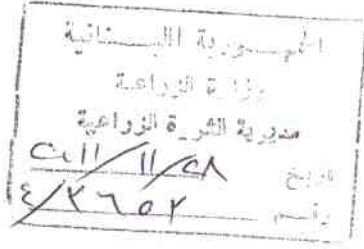 الجمهورية اللبنانية
وزارة الزراعة
مديرية الثروة الزراعية
تاريخ ٢٠١١/١١/٢٨
رقم ٤/٣٦٥٢